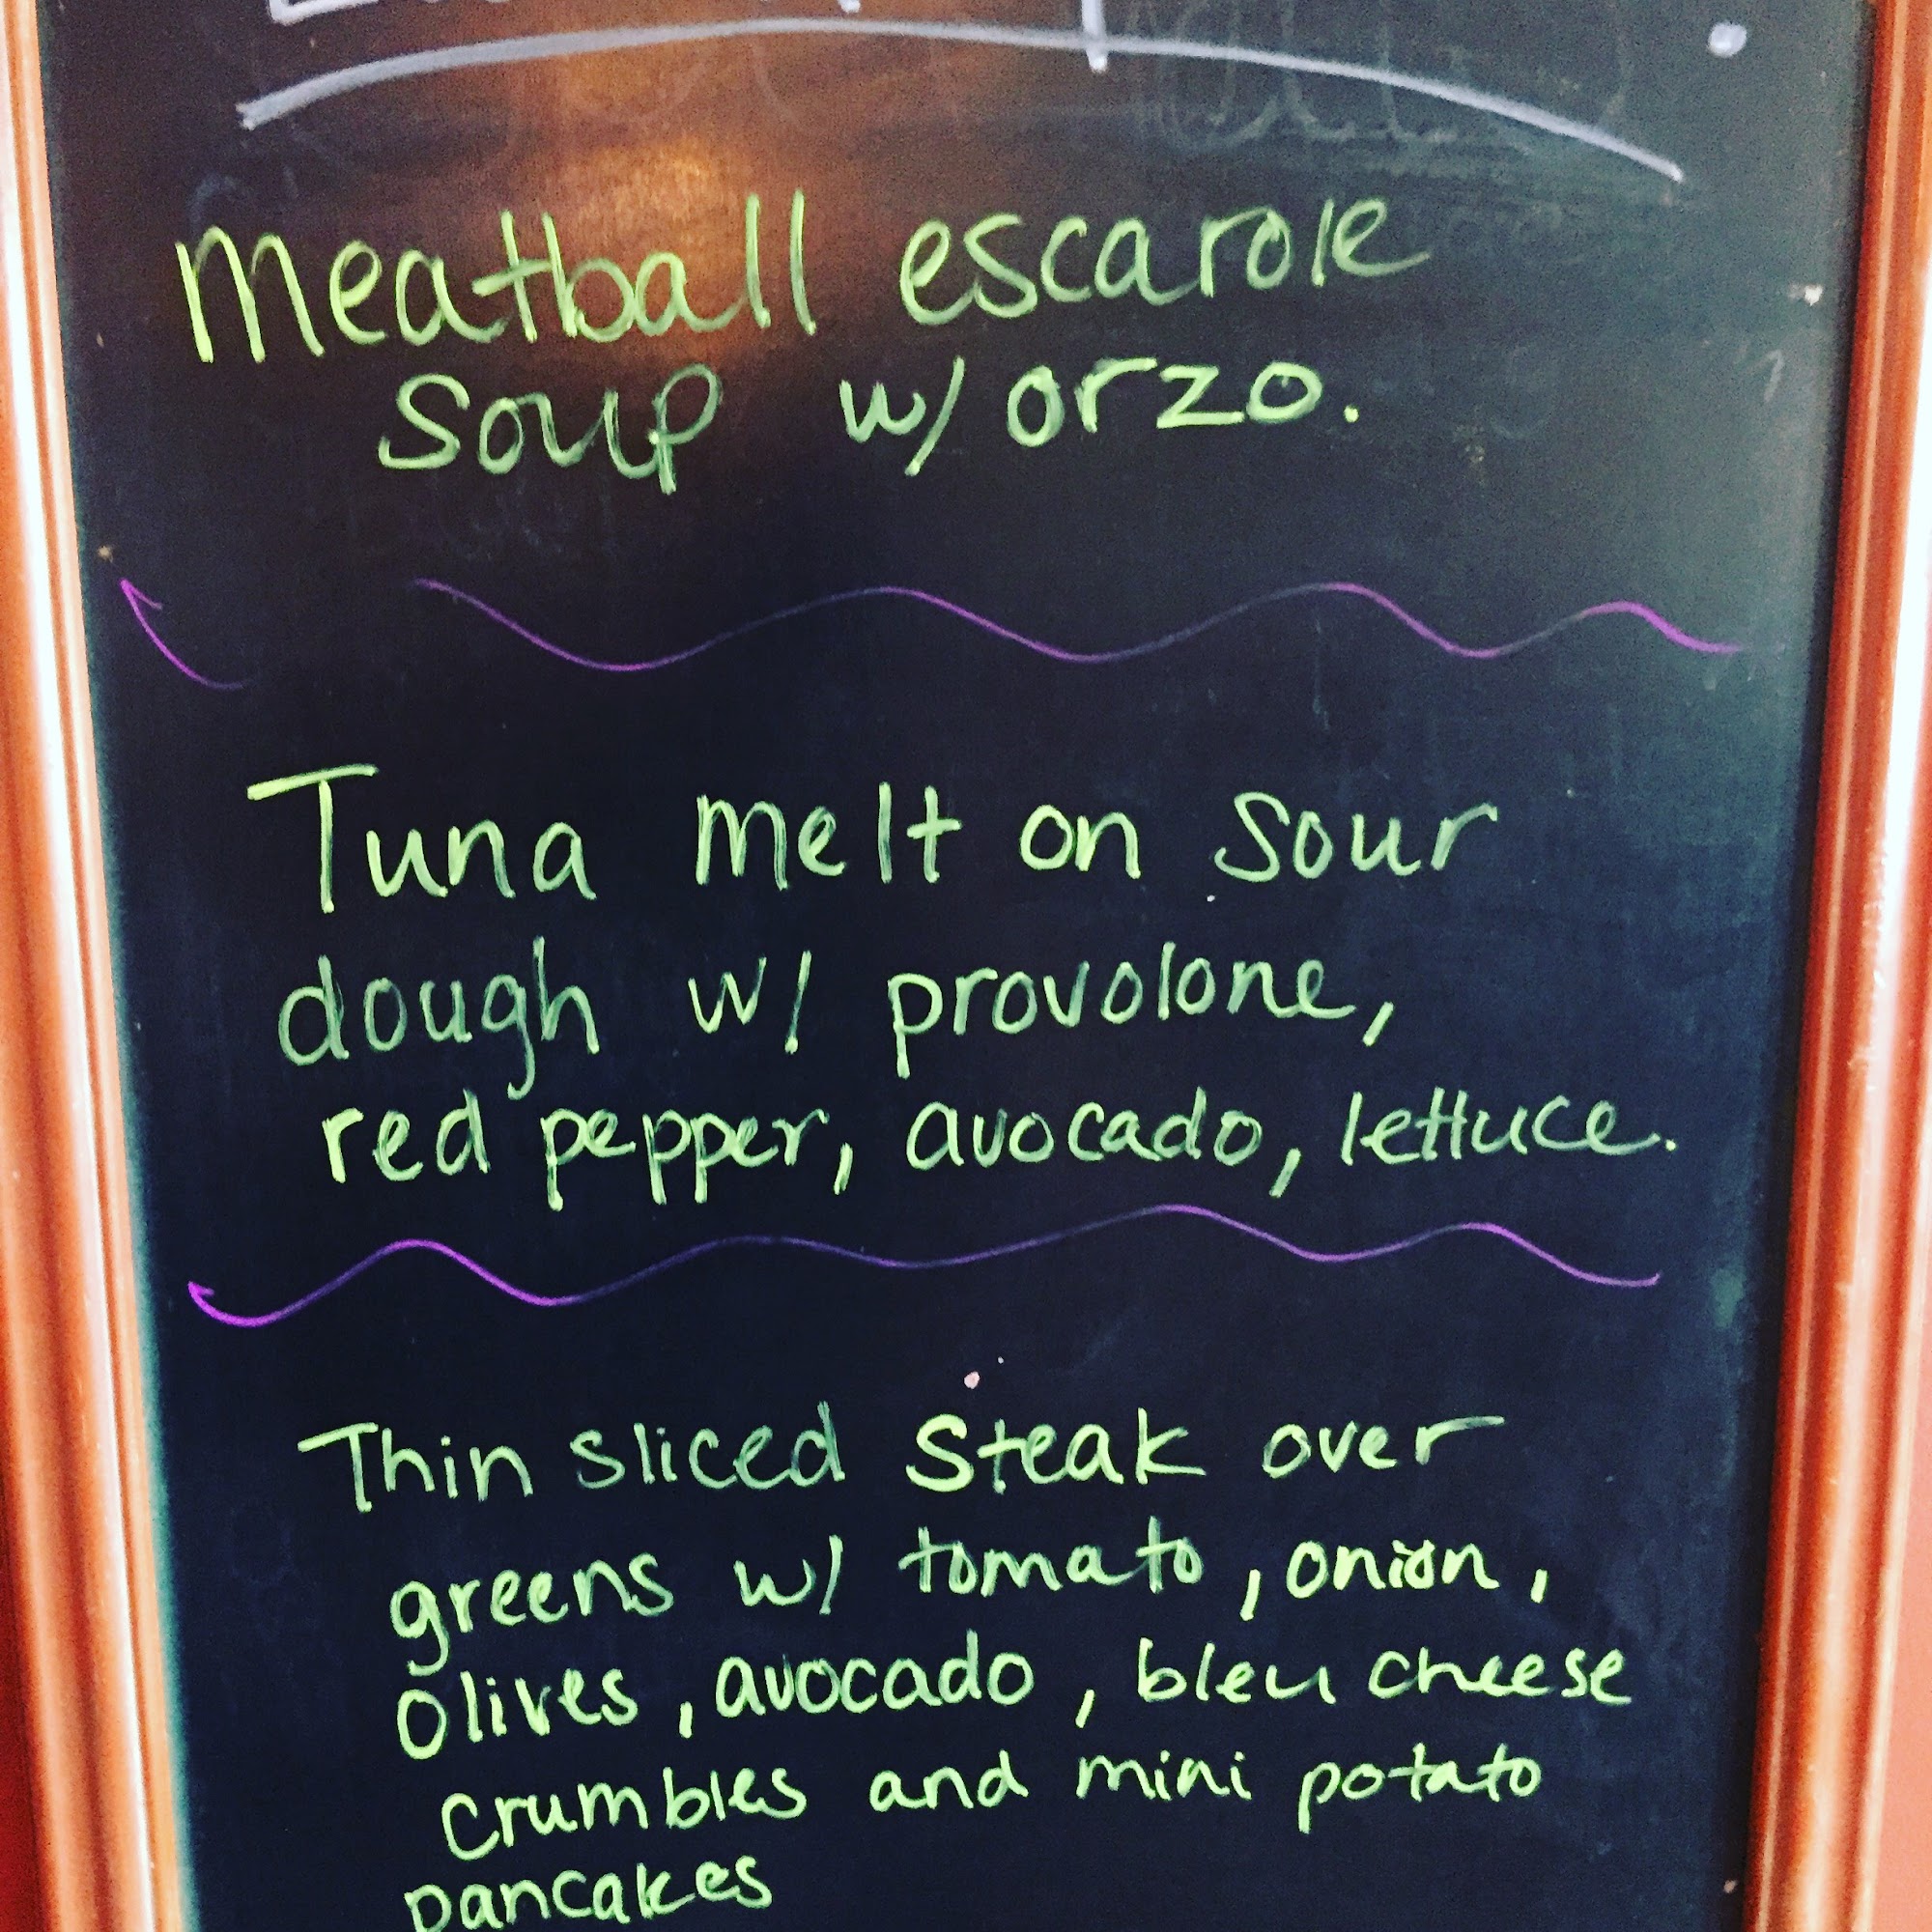 Meatball escarole
soup w/ orzo.
Tuna melt on sour
dough w/ provolone,
red pepper, avocado, lettuce.
Thin sliced steak over
greens w/ tomato, onion,
Olives, avocado, bleu cheese
crumbles and mini potato
pancakes